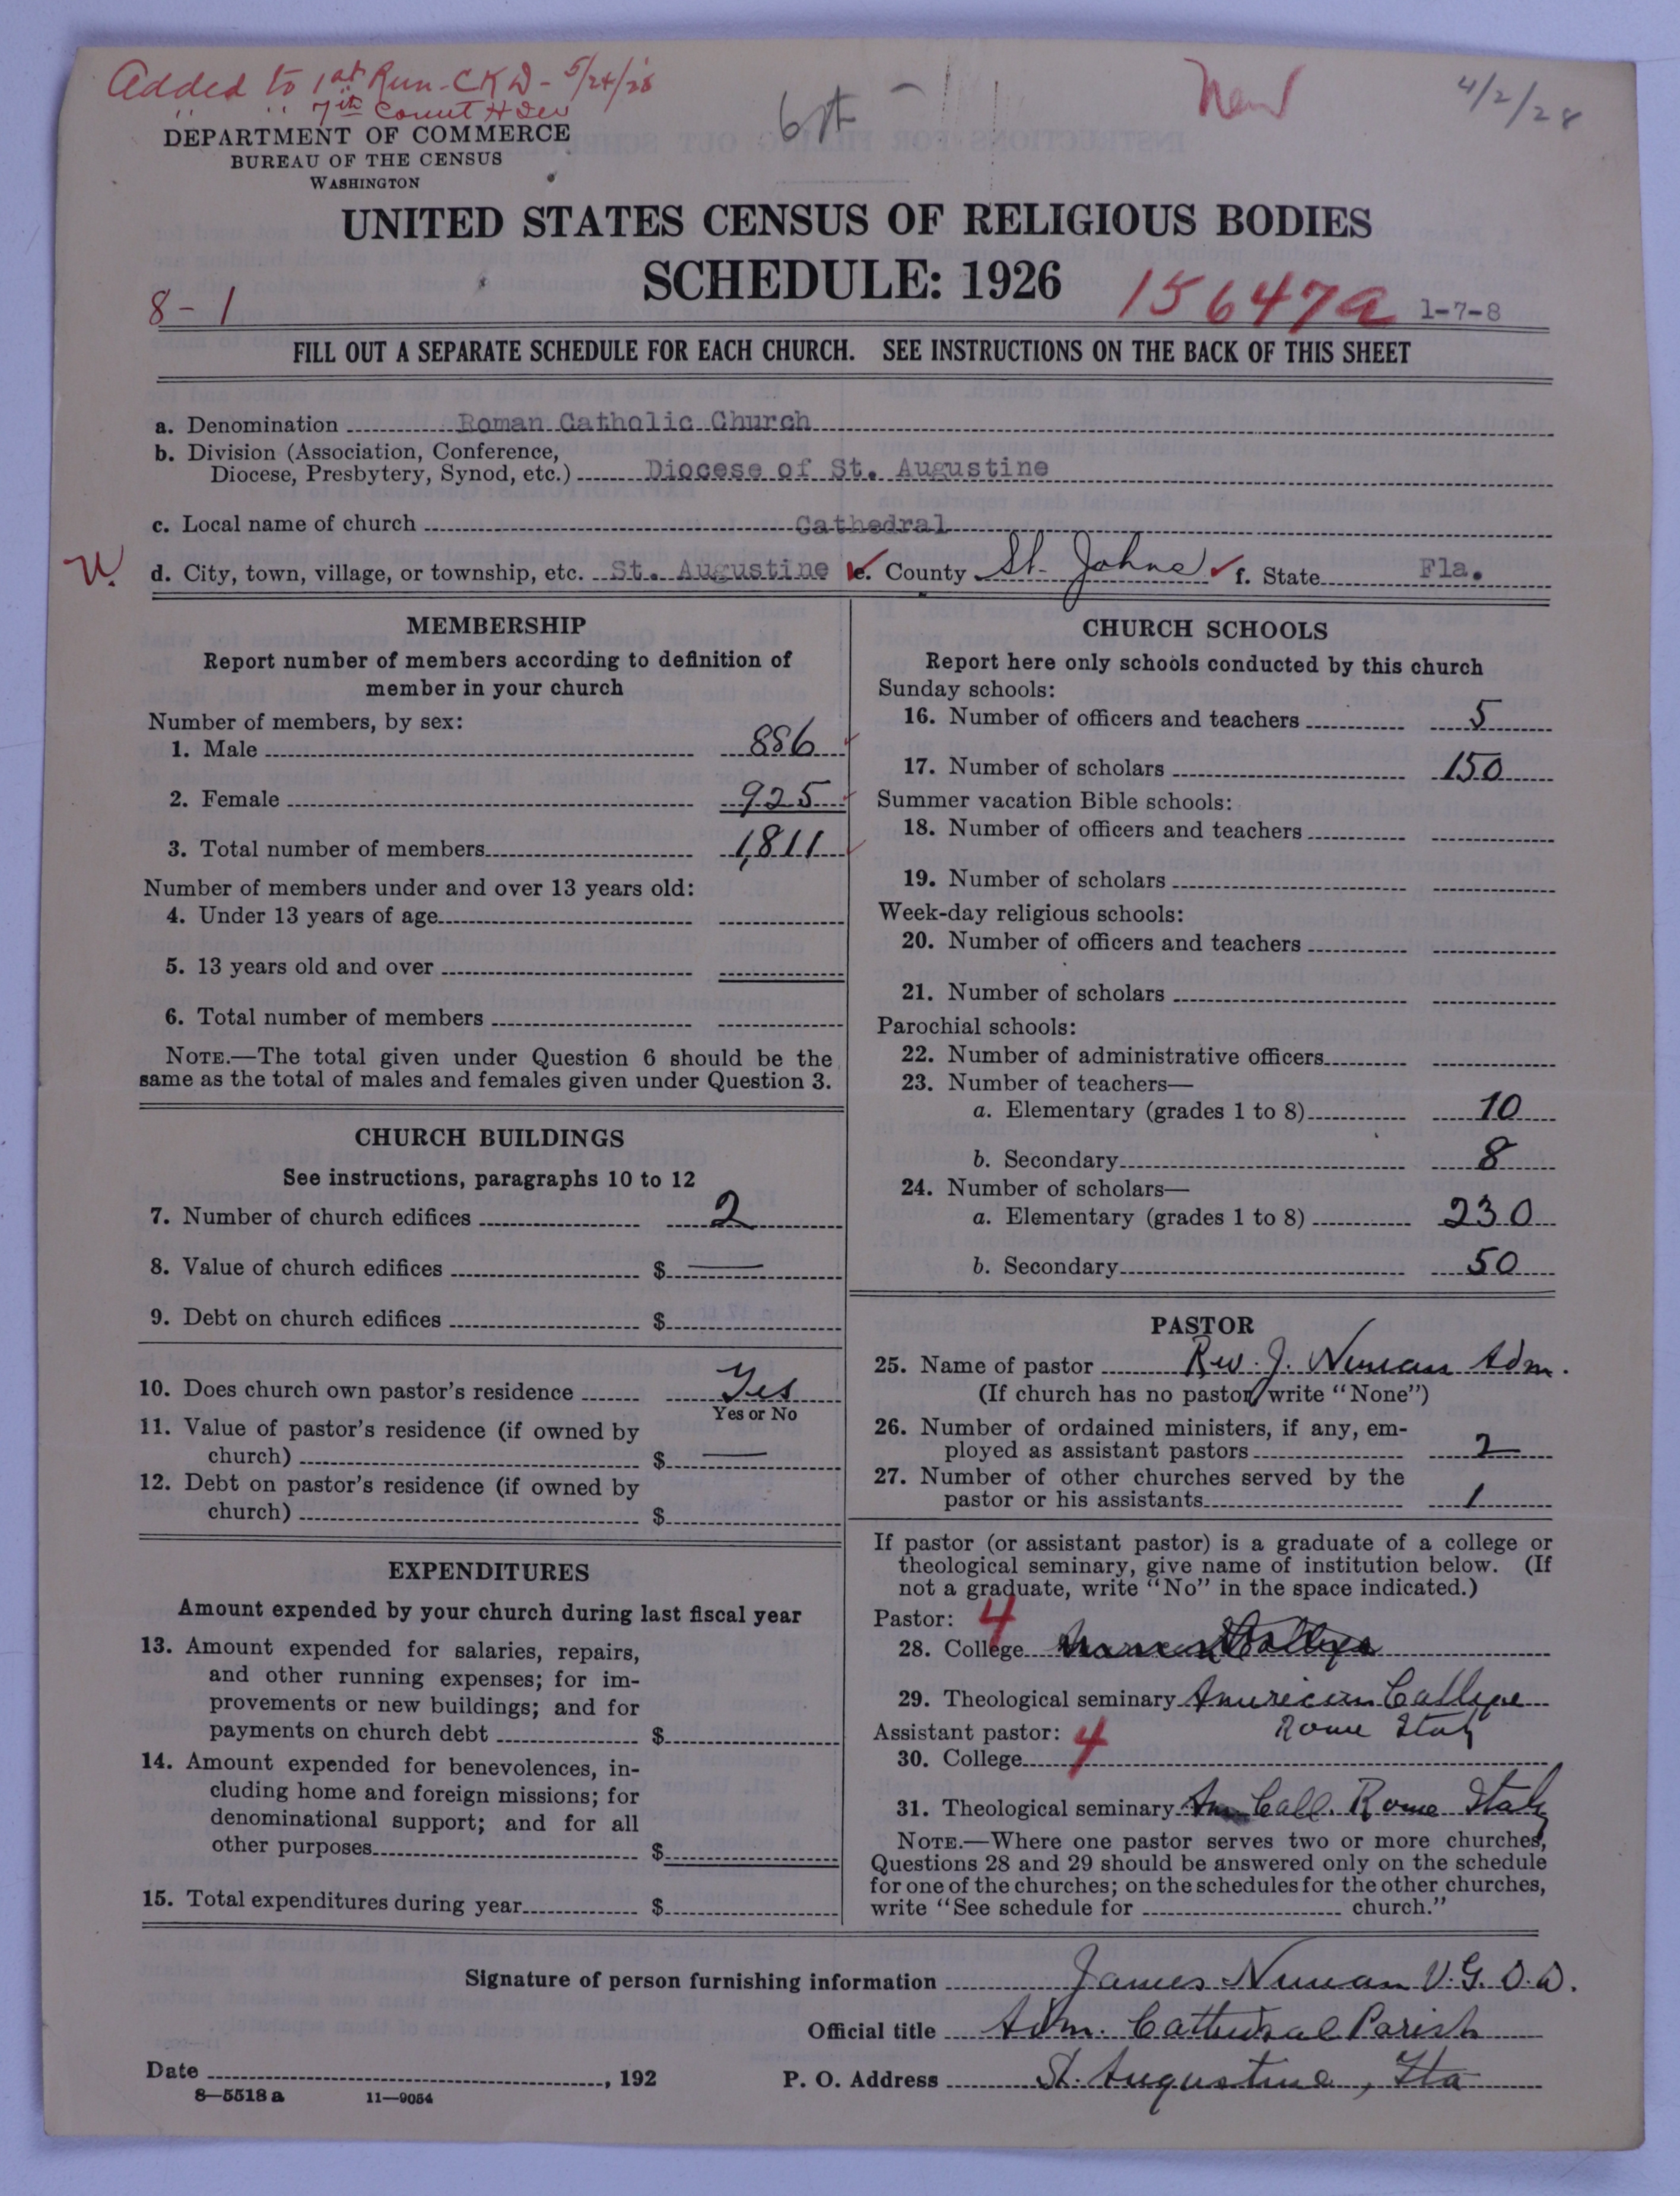 Added to 1st Run - CKD - 5/24/28
" " 7th Count
6
New
4/2/28
DEPARTMENT OF COMMERCE
BUREAU OF THE CENSUS
WASHINGTON
UNITED STATES CENSUS OF RELIGIOUS BODIES
SCHEDULE: 1926
8-1
15647a
1-7-8
FILL OUT A SEPARATE SCHEDULE FOR EACH CHURCH. SEE INSTRUCTIONS ON THE BACK OF THIS SHEET
a. Denomination Roman Catholic Church
b. Division (Association, Conference,
Diocese, Presbytery, Synod, etc.) Diocese of St. Augustine
c. Local name of church Cathedral
d. City, town, village, or township, etc. St. Augustine e. County St. Johns f. State Fla.
MEMBERSHIP
Report number of members according to definition of
member in your church
Number of members, by sex:
1. Male 886
2. Female 925
3. Total number of members 1,811
Number of members under and over 13 years old:
4. Under 13 years of age
5. 13 years old and over
6. Total number of members
NOTE.—The total given under Question 6 should be the
same as the total of males and females given under Question 3.
CHURCH BUILDINGS
See instructions, paragraphs 10 to 12
7. Number of church edifices 2
8. Value of church edifices $ —
9. Debt on church edifices $
10. Does church own pastor's residence Yes
Yes or No
11. Value of pastor's residence (if owned by
church) $ —
12. Debt on pastor's residence (if owned by
church) $
EXPENDITURES
Amount expended by your church during last fiscal year
13. Amount expended for salaries, repairs,
and other running expenses; for im-
provements or new buildings; and for
payments on church debt $
14. Amount expended for benevolences, in-
cluding home and foreign missions; for
denominational support; and for all
other purposes $
15. Total expenditures during year $
CHURCH SCHOOLS
Report here only schools conducted by this church
Sunday schools:
16. Number of officers and teachers 5
17. Number of scholars 150
Summer vacation Bible schools:
18. Number of officers and teachers
19. Number of scholars
Week-day religious schools:
20. Number of officers and teachers
21. Number of scholars
Parochial schools:
22. Number of administrative officers
23. Number of teachers—
a. Elementary (grades 1 to 8) 10
b. Secondary 8
24. Number of scholars—
a. Elementary (grades 1 to 8) 230
b. Secondary 50
PASTOR
25. Name of pastor Rev. J. Nunan Adm.
(If church has no pastor, write "None")
26. Number of ordained ministers, if any, em-
ployed as assistant pastors 2
27. Number of other churches served by the
pastor or his assistants 1
If pastor (or assistant pastor) is a graduate of a college or
theological seminary, give name of institution below. (If
not a graduate, write "No" in the space indicated.)
Pastor: 4
28. College
29. Theological seminary American College
Rome Italy
Assistant pastor: 4
30. College
31. Theological seminary Am Coll. Rome Italy
NOTE.—Where one pastor serves two or more churches,
Questions 28 and 29 should be answered only on the schedule
for one of the churches; on the schedules for the other churches,
write "See schedule for church."
Signature of person furnishing information James Nunan V.G. D.D.
Official title Adm. Cathedral Parish
Date , 192
P. O. Address St. Augustine, Fla
8—5518 a 11—9054